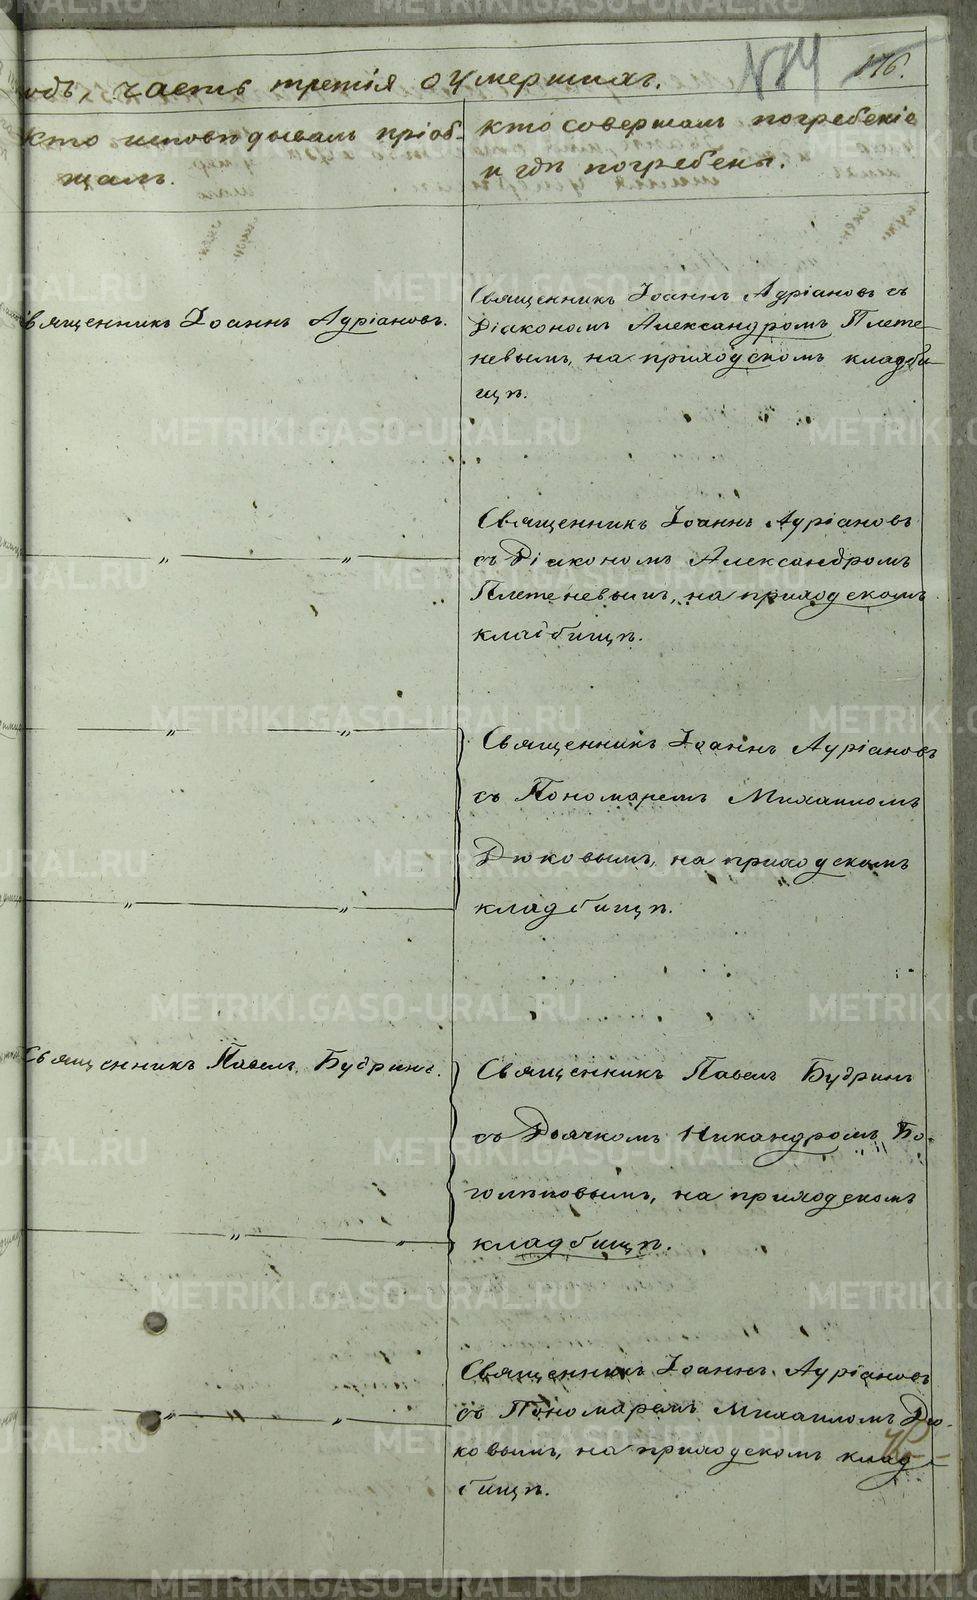 одъ, часть третія о умершихъ.
176.
Кто исповѣдывалъ и пріоб-
щалъ.
Кто совершалъ погребеніе
и гдѣ погребены.
Священникъ Іоаннъ Адріановъ.
Священникъ Іоаннъ Адріановъ съ
Діакономъ Александромъ Плете-
невымъ, на приходскомъ кладби-
щѣ.
— „ — „ —
Священникъ Іоаннъ Адріановъ
съ Діакономъ Александромъ
Плетеневымъ, на приходскомъ
кладбищѣ.
— „ — „ —
Священникъ Іоаннъ Адріановъ
съ Пономаремъ Михаиломъ
Дюковымъ, на приходскомъ
— „ — „ —
кладбищѣ.
Священникъ Павелъ Будринъ.
Священникъ Павелъ Будринъ
съ Дьячкомъ Никандромъ Бо-
голѣповымъ, на приходскомъ
— „ — „ —
кладбищѣ.
Священникъ Іоаннъ Адріановъ
— „ — „ —
съ Пономаремъ Михаиломъ Дю-
ковымъ, на приходскомъ клад-
бищѣ.
METRIKI.GASO-URAL.RU